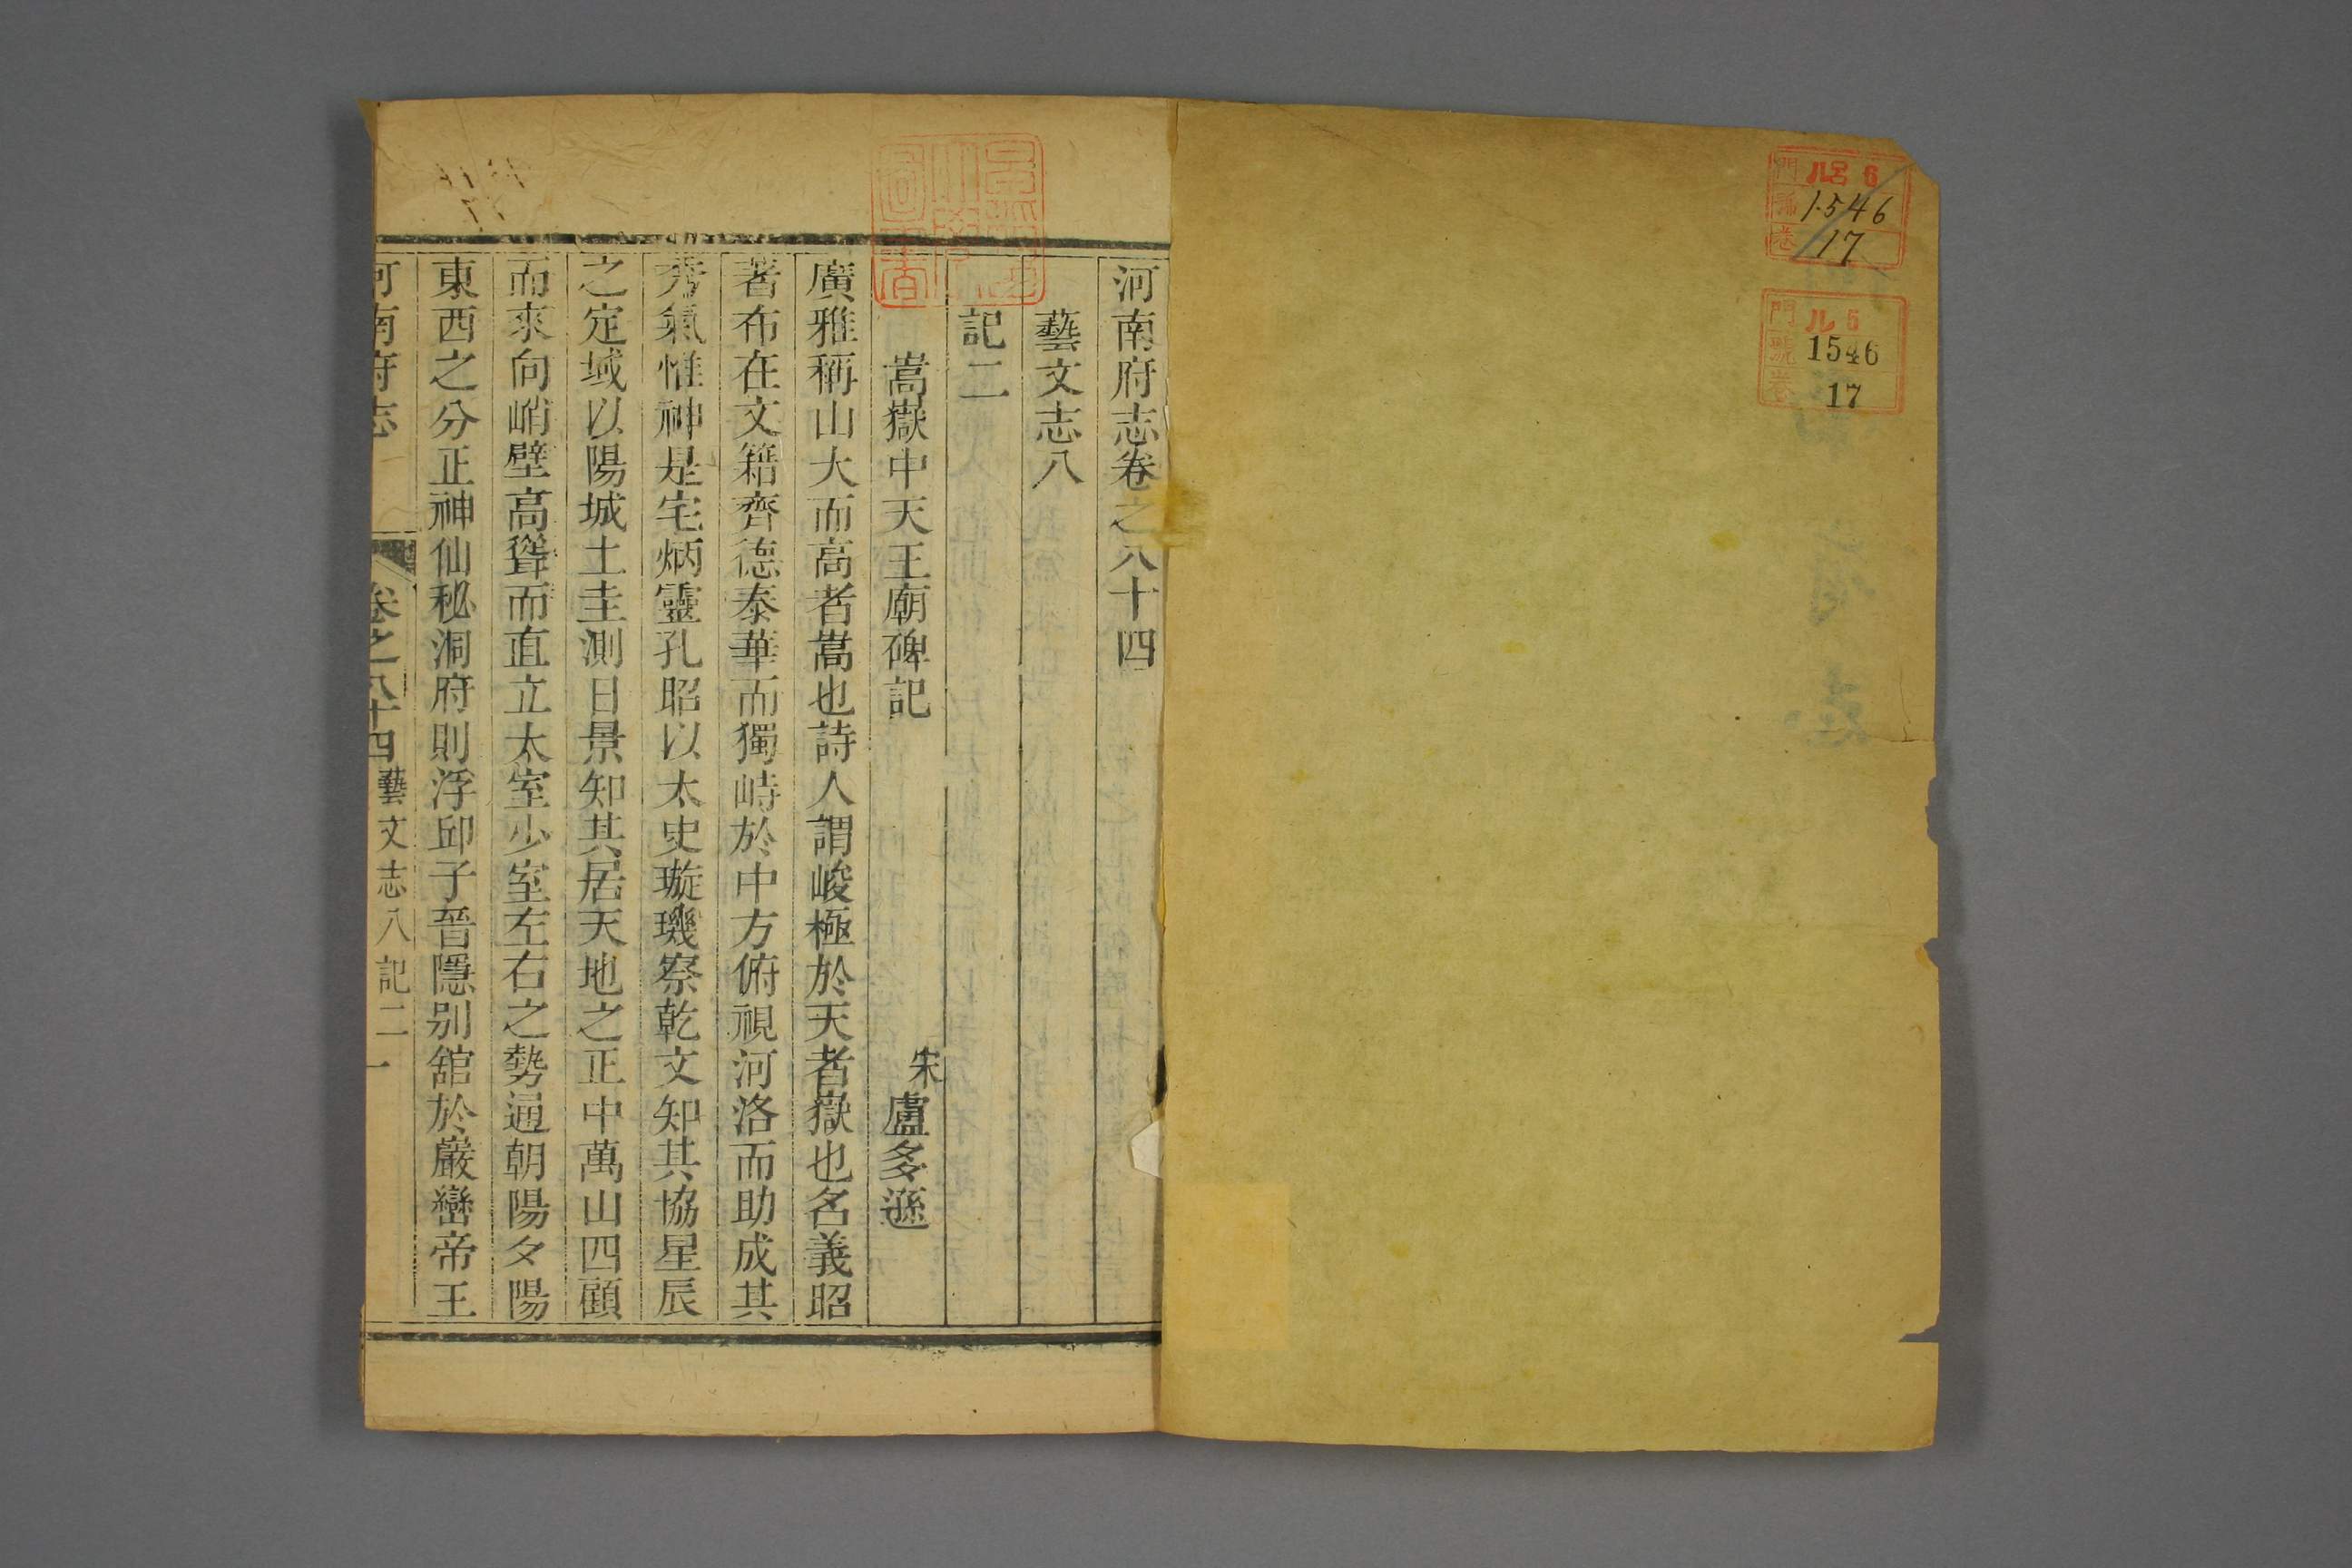 門 ル 6
號 1546
卷 17
門 ル 5
號 1546
卷 17
河南府志卷之八十四
藝文志八
記二
嵩嶽中天王廟碑記 宋盧多遜
廣雅稱山大而高者嵩也詩人謂峻極於天者嶽也名義昭
著布在文籍齊德泰華而獨峙於中方俯視河洛而助成其
秀氣惟神是宅炳靈孔昭以太史璇璣察乾文知其協星辰
之定域以陽城土圭測日景知其居天地之正中萬山四顧
而來向峭壁高聳而直立太室少室左右之勢通朝陽夕陽
東西之分正神仙秘洞府則浮邱子晉隱別舘於巖巒帝王
河南府志 卷之八十四 藝文志八 記二 一